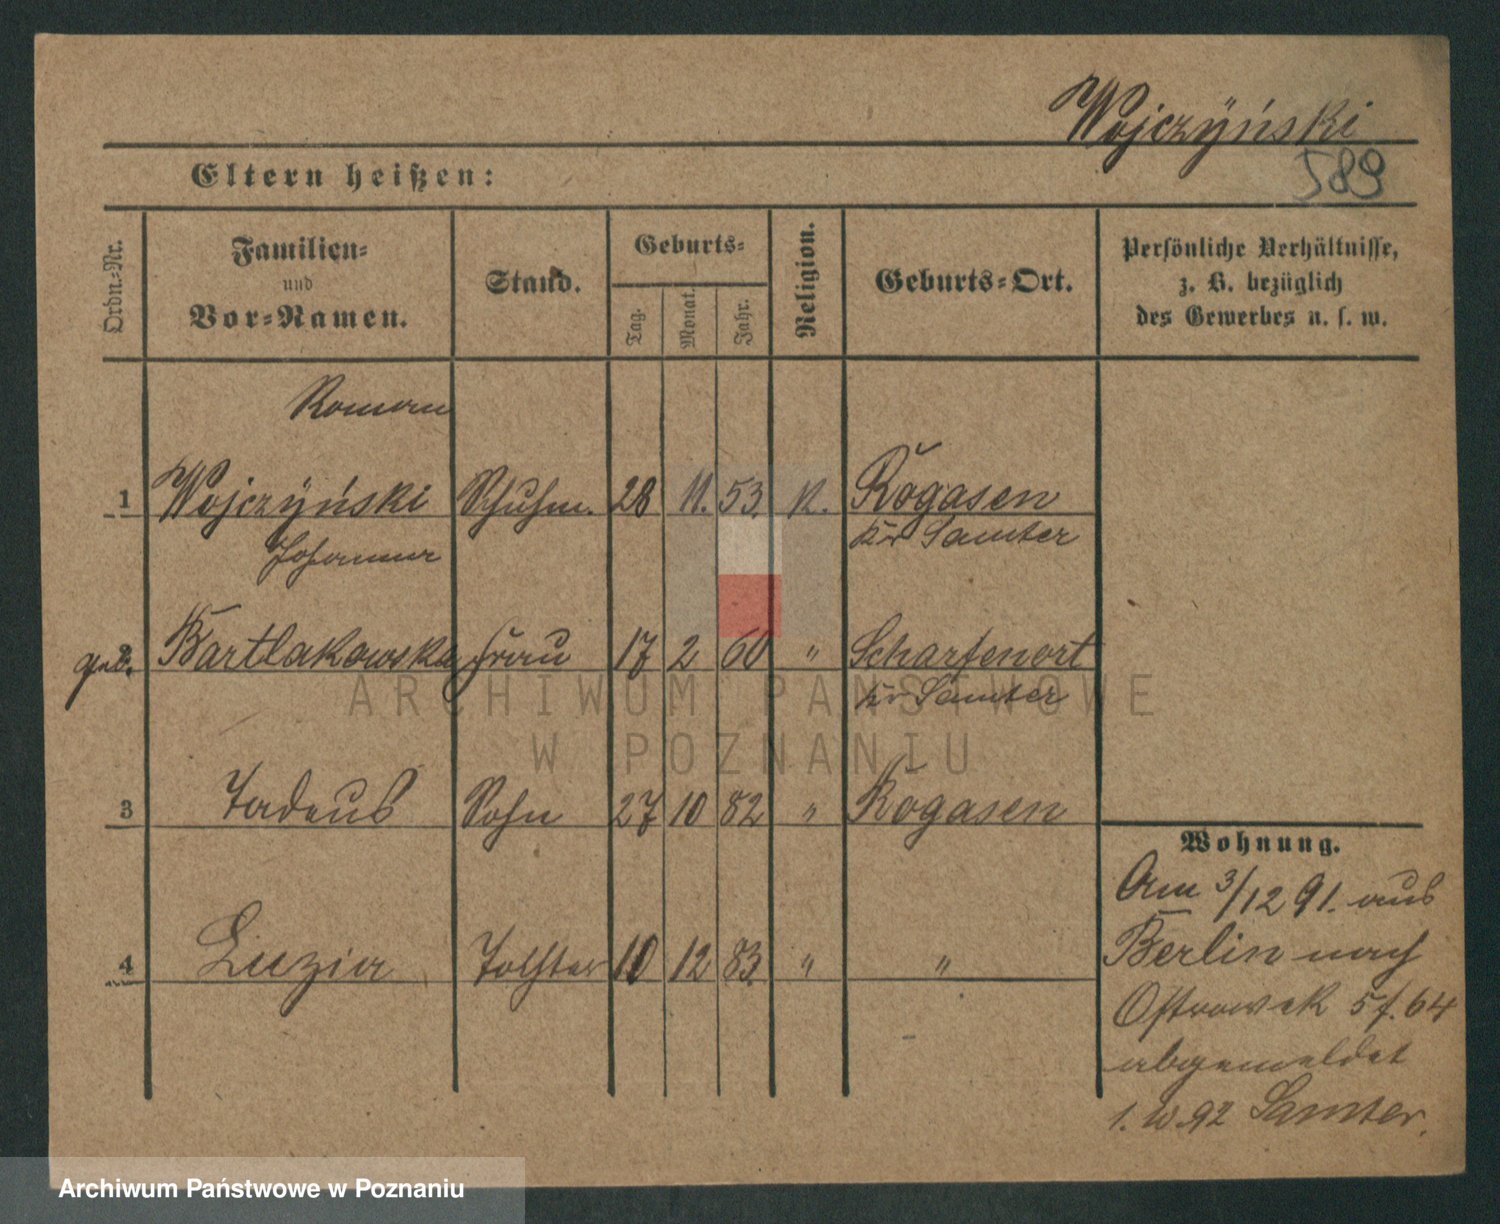 Wojczyński
589
Eltern heißen:
Ordn.-Nr.
Familien-
und
Vor-Namen.
Stand.
Geburts-
Tag.
Monat.
Jahr.
Religion.
Geburts-Ort.
Persönliche Verhältnisse,
z. B. bezüglich
des Gewerbes u. s. w.
Roman
1 Wojczyński Schuhm. 28 11. 53. K. Rogasen
Kr Samter
Johanna
2 geb. Bartlakowska Frau 17 2 60 " Scharfenort
Kr Samter
3 Tadeus Sohn 27 10 82 " Rogasen
4 Luzia Tochter 10 12 83. " "
Wohnung.
Am 3/12 91. aus
Berlin nach
Ostrowek 5 f. 64
abgemeldet
92 Samter.
ARCHIWUM PAŃSTWOWE
W POZNANIU
Archiwum Państwowe w Poznaniu